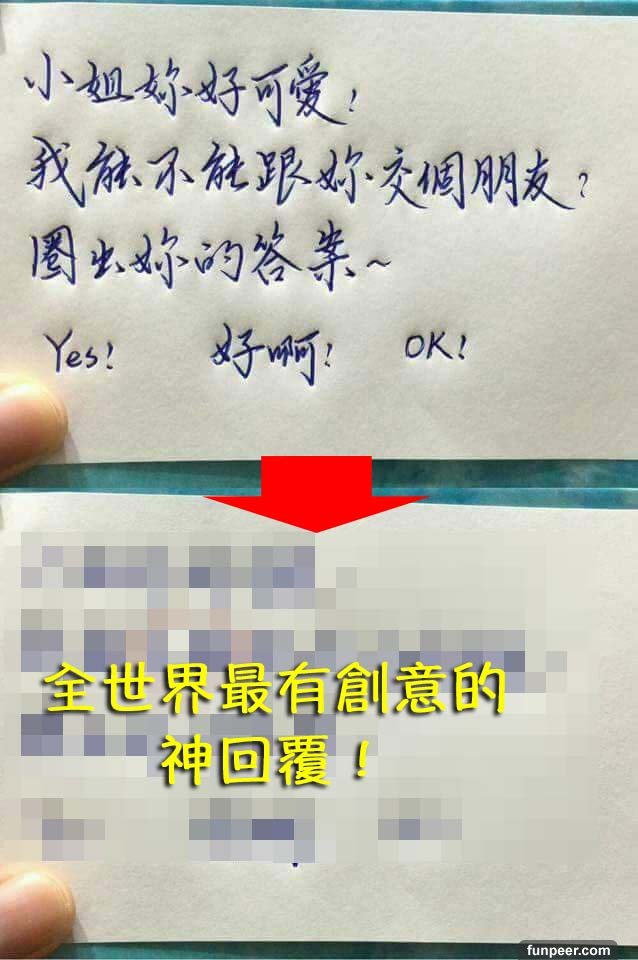 小姐妳好可愛!
我能不能跟妳交個朋友?
圈出妳的答案~
Yes! 好啊! OK!
全世界最有創意的
神回覆!
funpeer.com